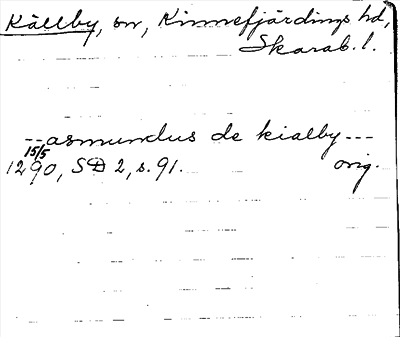 Källby, sn, Kinnefjärdings hd,
Skarab. l.
--asmundus de kialby---
15/5
1290, SD 2, s. 91. orig.